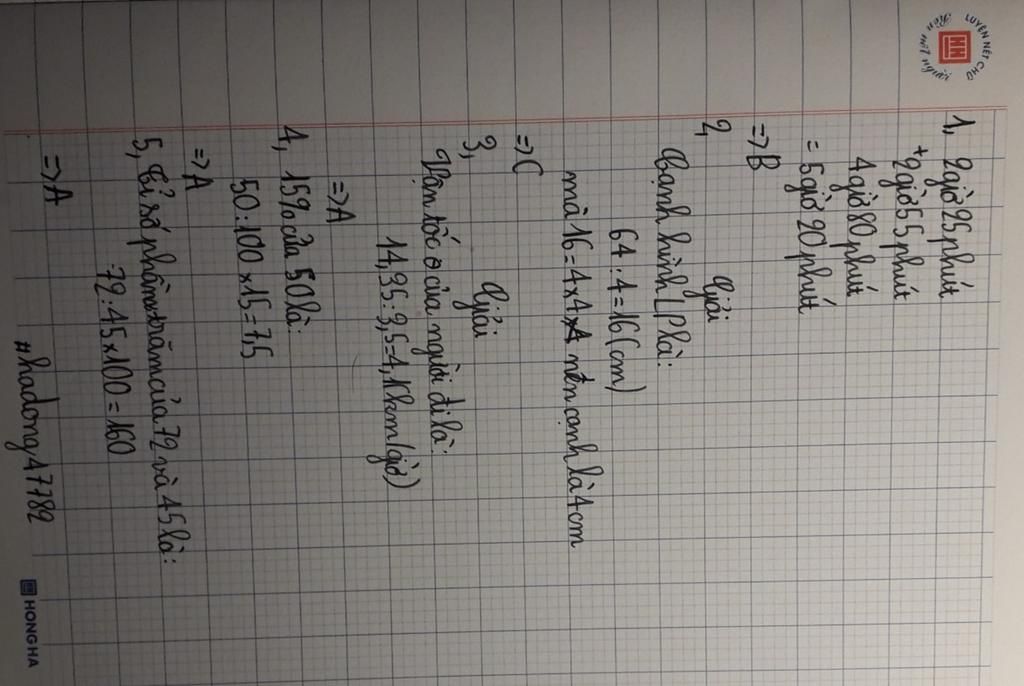 LUYỆN NÉT CHỮ
Rèn nết người
1, 2 giờ 25 phút
+ 2 giờ 55 phút
4 giờ 80 phút
= 5 giờ 20 phút
=> B
2, Giải
Cạnh hình LP là:
64 : 4 = 16 (cm)
mà 16 = 4 x 4 nên cạnh là 4 cm
=> C
3, Giải
Vận tốc của người đi là:
14,35 : 3,5 = 4,1 km (giờ)
=> A
4, 15% của 50 là:
50 : 100 x 15 = 7,5
=> A
5, Tỉ số phần trăm của 72 và 45 là:
72 : 45 x 100 = 160
=> A
#hadong47782
HONGHA